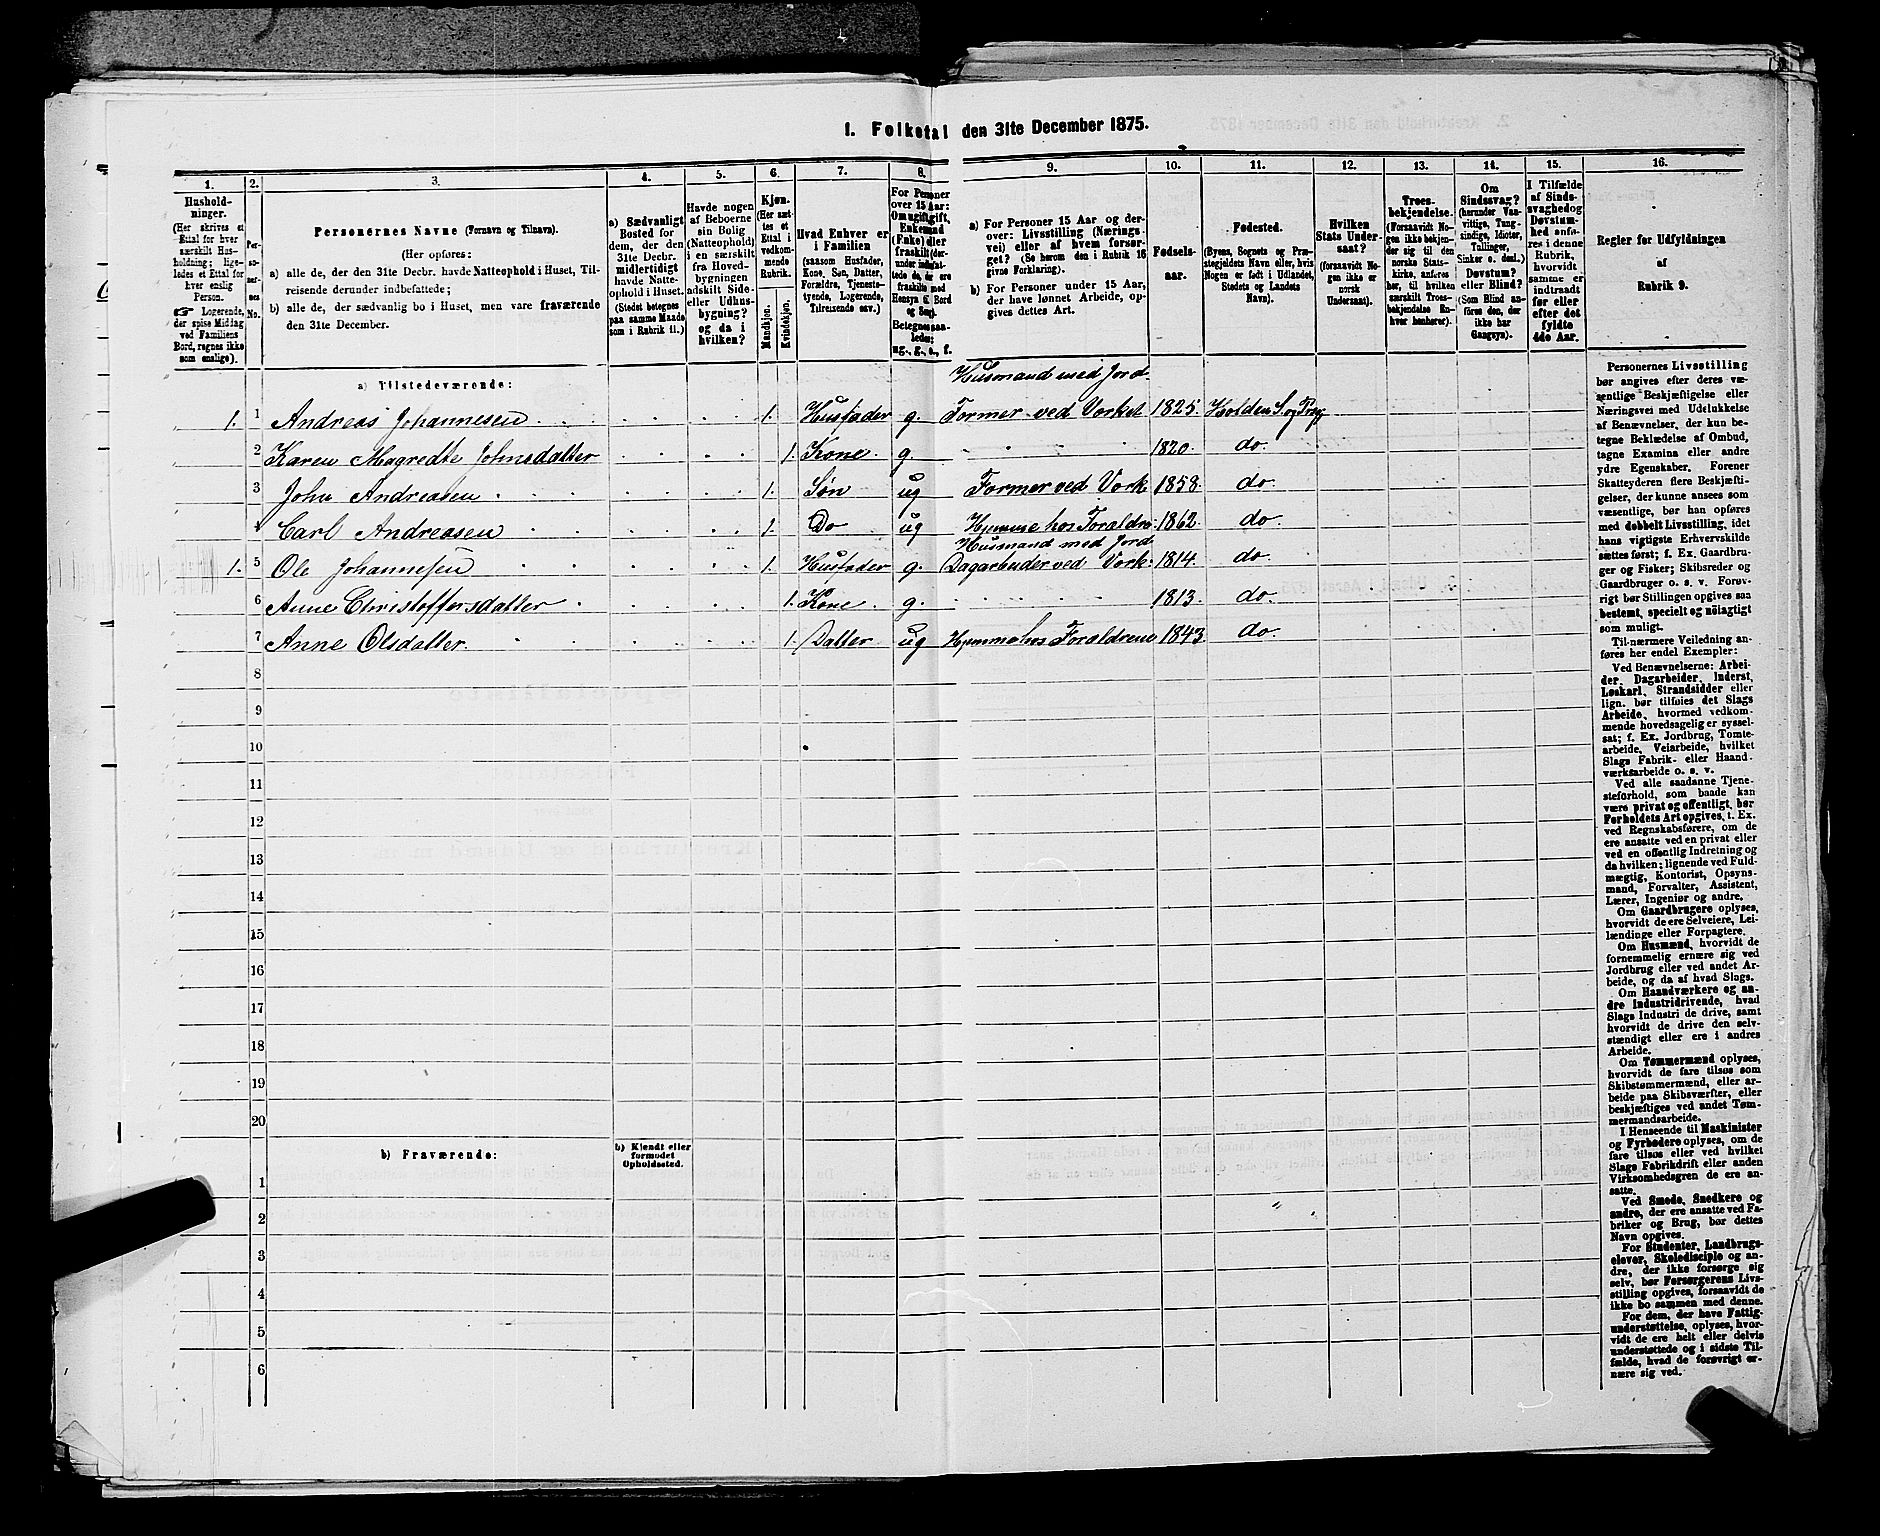 1. Folketal den 31te December 1875.
1. 2. 3. 4. 5. 6. 7. 8. 9. 10. 11. 12. 13. 14. 15. 16.
Husholdninger.
(Her skrives et Ettal for hver særskilt Husholdning; ligeledes et Ettal for hver enslig Person.
☛ Logerende, der spise Middag ved Familiens Bord, regnes ikke som enslige).
Personernes No.
Personernes Navne (Fornavn og Tilnavn).
(Her opføres:
a) alle de, der den 31te Decbr. havde Natteophold i Huset, Tilreisende derunder indbefattede;
b) alle de, der sædvanlig bo i Huset, men vare fraværende den 31te December.
a) Sædvanligt Bosted for dem, der den 31te Decbr. midlertidigt havde Natteophold i Huset.
(Stedet betegnes paa samme Maade som i Rubrik 11.)
Havde nogen af Beboerne sin Bolig (Natteophold) i en særskilt fra Hovedbygningen adskilt Side- eller Udhusbygning? og da i hvilken?
Kjøn.
(Her sættes et Ettal i vedkommende Rubrik.
Mandkjøn.
Kvindekjøn.
Hvad Enhver er i Familien
(saasom Husfader, Kone, Søn, Datter, Forældre, Tjenestetyende, Logerende, Tilreisende osv.)
For Personer over 15 Aar: Om ugift, gift, Enkemand (Enke) eller fraskilt (derunder indbefattede de, der ere fraskilte med Hensyn til Bord og Seng).
Betegnes saaledes: ug., g., e., f.
a) For Personer 15 Aar og derover: Livsstilling (Næringsvei) eller af hvem forsørget? (Se herom den i Rubrik 16 givne Forklaring).
b) For Personer under 15 Aar, der have lønnet Arbeide, opgives dettes Art.
Fødselsaar.
Fødested.
(Byens, Sognets og Præstegjeldets Navn eller, hvis Nogen er født i Udlandet, Stedets og Landets Navn).
Hvilken Stats Undersaat?
(forsaavidt Nogen ikke er norsk Undersaat).
Troesbekjendelse.
(Forsaavidt Nogen ikke bekjender sig til den norske Statskirke, anføres her, til hvilken særskilt Troesbekjendelse Enhver henhører).
Om Sindssvag?
(herunder Vanvittige, Tungsindige, Idioter, Tullinger, Sinker o. desl.).
Døvstum? eller Blind?
(Som Blind anføres den, der ikke har Gangsyn).
I Tilfælde af Sindssvaghed og Døvstumhed anføres i denne Rubrik, hvorvidt samme er indtraadt før eller efter det fyldte 4de Aar.
Regler for Udfyldningen
af
Rubrik 9.
a) Tilstedeværende:
Husmand med Jord
1. 1 Andreas Johannesen 1. Husfader g. Former ved Værket 1825. Holden S. og Præg
2 Karen Magredte Johnsdatter 1. Kone g. 1820. do.
3 John Andreasen 1. Søn ug Former ved Værk 1858. do.
4 Carl Andreasen 1. Do ug Hjemme hos Foraldre 1862 do.
Husmand med Jord
1. 5 Ole Johannesen 1. Husfader g. Dagarbeider ved Værk. 1814. do.
6 Anne Christoffersdatter 1. Kone g. 1813. do.
7 Anne Olsdatter 1. Datter ug Hjemme hos Foraldrene 1843 do.
8
9
10
11
12
13
14
15
16
17
18
19
20
b) Fraværende:
b) Kjendt eller formodet Opholdssted.
1
2
3
4
5
6
Personernes Livsstilling
bør angives efter deres væ-
sentlige Beskjæftigelse eller
Næringsvei med Udelukkelse
af Benævnelser, der kun be-
tegne Beklædelse af Ombud,
tagne Examina eller andre
ydre Egenskaber. Forener
Skatteyderen flere Beskjæfti-
gelser, der kunne ansees som
væsentlige, bør han opføres
med dobbelt Livsstilling, idet
hans vigtigste Erhvervskilde
sættes først; f. Ex. Gaardbru-
ger og Fisker; Skibsreder og
Gaardbruger o. s. v. Forøv-
rigt bør Stillingen opgives saa
bestemt, specielt og nöiagtigt
som muligt.
Til nærmere Veiledning an-
føres her endel Exempler:
Ved Benævnelserne: Arbei-
der, Dagarbeider, Inderst,
Løskarl, Strandsidder eller
lign. bør tilføies det Slags
Arbeide, hvormed vedkom-
mende hovedsagelig er syssel-
sat; f. Ex. Jordbrug, Tomte-
arbeide, Veiarbeide, hvilket
Slags Fabrik- eller Haand-
værksarbeide o. s. v.
Ved alle saadanne Tjene-
steforhold, som baade kan
være privat og offentligt, bør
Forholdets Art opgives, t. Ex.
ved Regnskabsførere, om de
ere ansatte ved en privat eller
ved en offentlig Indretning og
da hvilken; lignende ved Fuld-
mægtig, Kontorist, Opsyns-
mand, Forvalter, Assistent,
Lærer, Ingeniør og andre.
Om Gaardbrugere oplyses,
hvorvidt de ere Selveiere, Lei-
lændinge eller Forpagtere.
Om Husmænd, hvorvidt de
fornemmelig ernære sig ved
Jordbrug eller ved andet Ar-
beide, og da af hvad Slags.
Om Haandværkere og an-
dre Industridrivende, hvad
Slags Industri de drive, samt
hvorvidt de drive den selv-
stændigt eller ere i andres
Arbeide.
Om Tømmermænd oplyses,
hvorvidt de fare tilsøs som
Skibstømmermænd, eller ar-
beide paa Skibsværfter, eller
beskjæftiges ved andet Tøm-
mermandsarbeide.
I Henseende til Maskinister
og Fyrbødere oplyses, om de
fare tilsøs eller ved hvilket
Slags Fabrikdrift eller anden
Virksomhedsgren de ere an-
satte.
Ved Smede, Snedkere og
andre, der ere ansatte ved Fa-
briker og Brug, bør dettes
Navn opgives.
For Studenter, Landbrugs-
elever, Skoledisciple og an-
dre, der ikke forsørge sig
selv, bør Forsørgerens Livs-
stilling opgives, forsaavidt de
ikke bo sammen med denne.
For dem, der have Fattig-
understøttelse, oplyses, hvor-
vidt de ere helt eller delvis
understøttede og i sidste Til-
fælde, hvad de forøvrigt er-
nære sig ved.